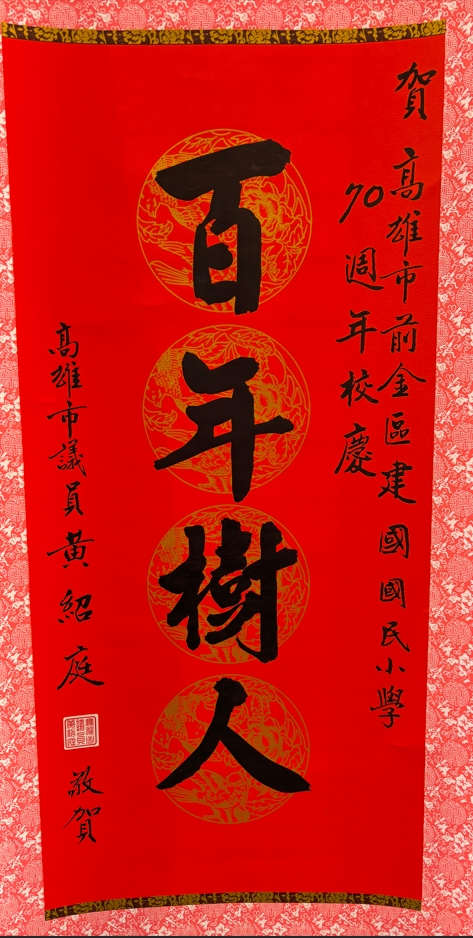 賀 高雄市前金區建國國民小學
70週年校慶
百年樹人
高雄市議員 黃紹庭 敬賀